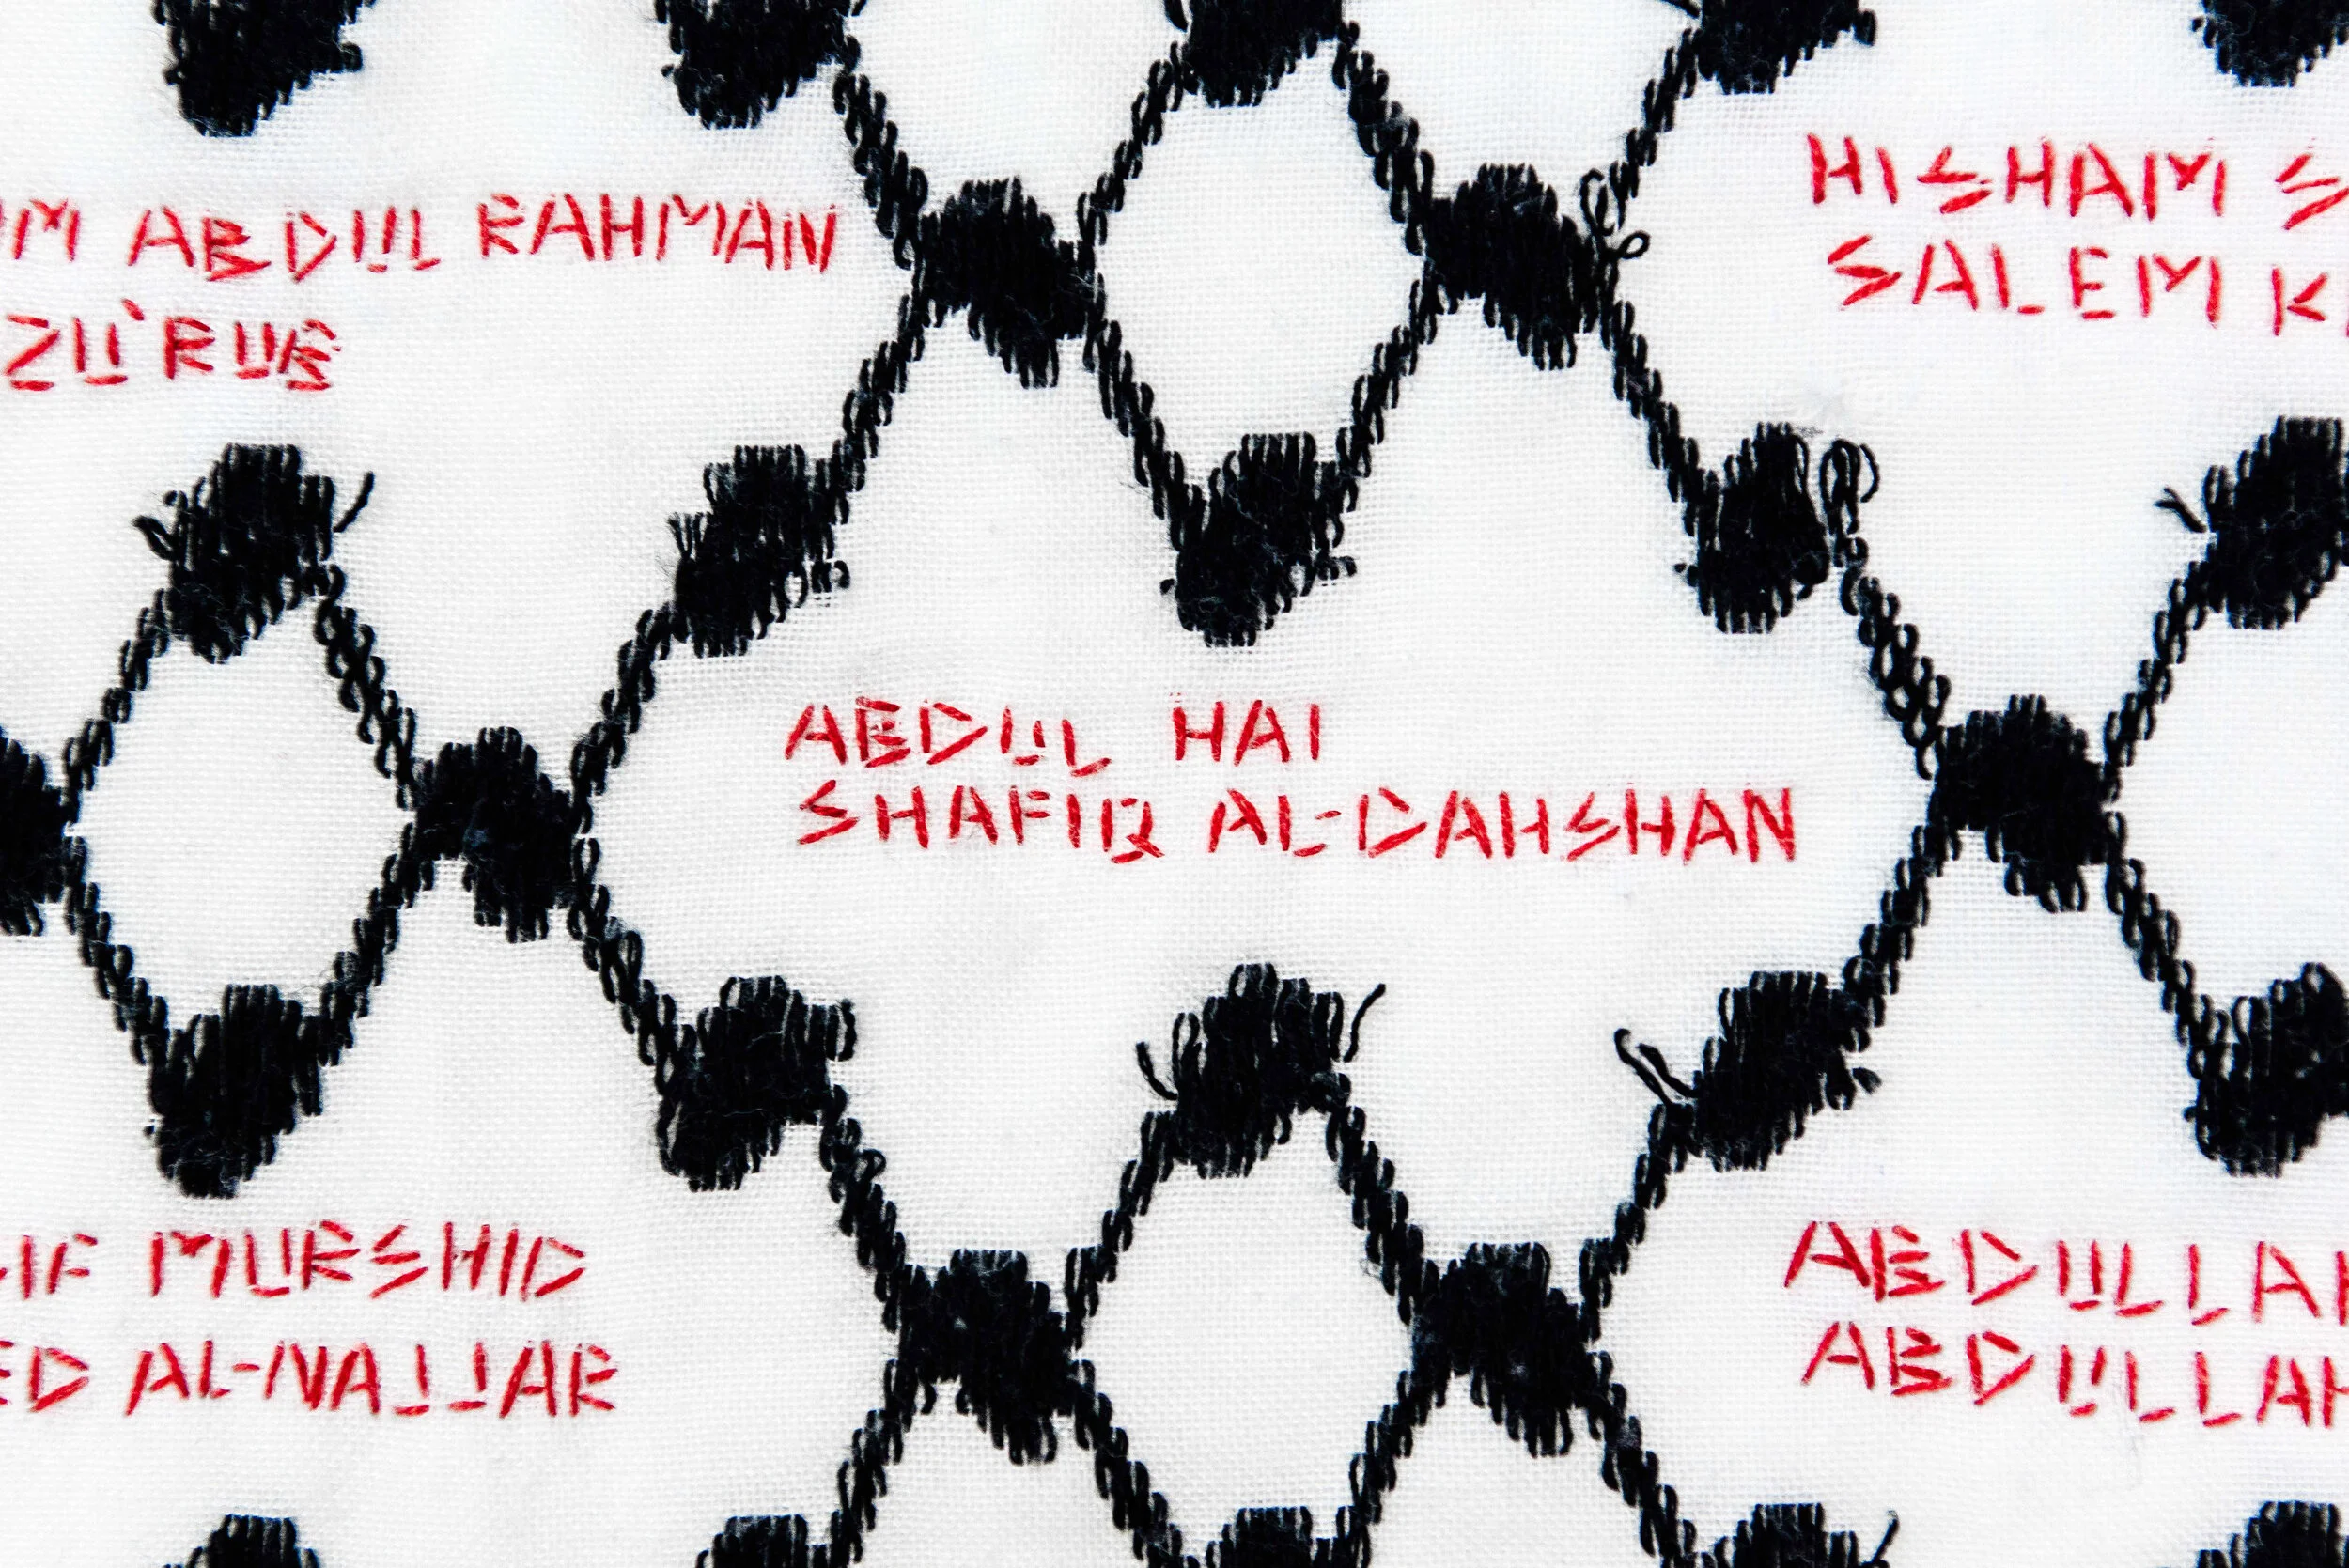 ABDUL RAHMAN
ZU'RUB
HISHAM
SALEM
ABDUL HAI
SHAFIQ AL-DAHSHAN
MURSHID
AL-NAJJAR
ABDULLAH
ABDULLAH